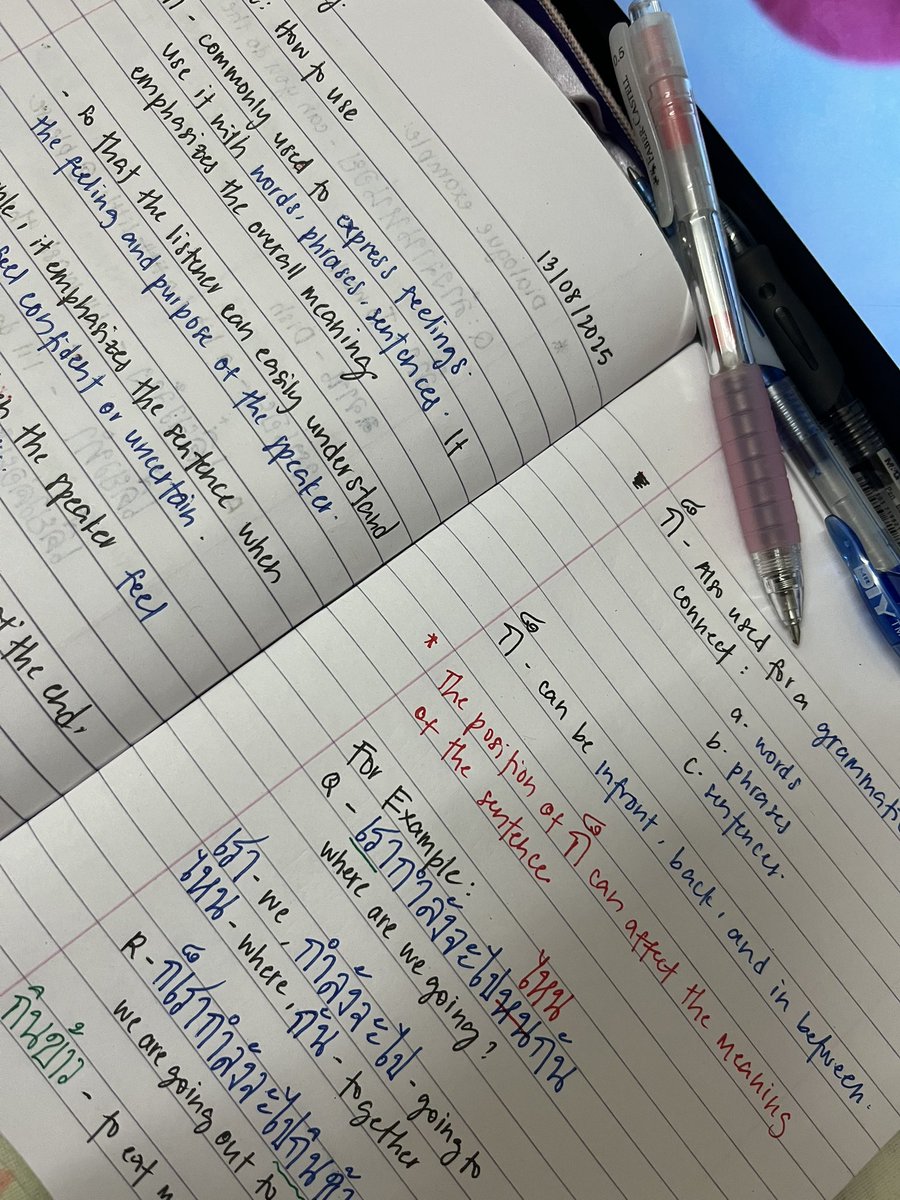 : How to use
- commonly used to express feelings.
use it with words, phrases, sentences. It
emphasizes the overall meaning
- so that the listener can easily understand
the feeling and purpose of the speaker.
it emphasizes the sentence when
feel confident or uncertain.
the speaker feel
the end,
13/08/2025
ก็ - Also used for a grammati
connect:
a. words
b. phrases
c. sentences.
ก็ - can be infront, back, and in between.
* The position of ก็ can affect the meaning
of the sentence
For Example:
ไหน
Q - เรากำลังจะไปหนกัน
where are we going?
เรา - we, กำลังจะไป - going to
ไหน - where, กัน - together
R - ก็เรากำลังจะไปกินข้า
we are going out to
กินข้าว - to eat
FABER-CASTELL
0.5